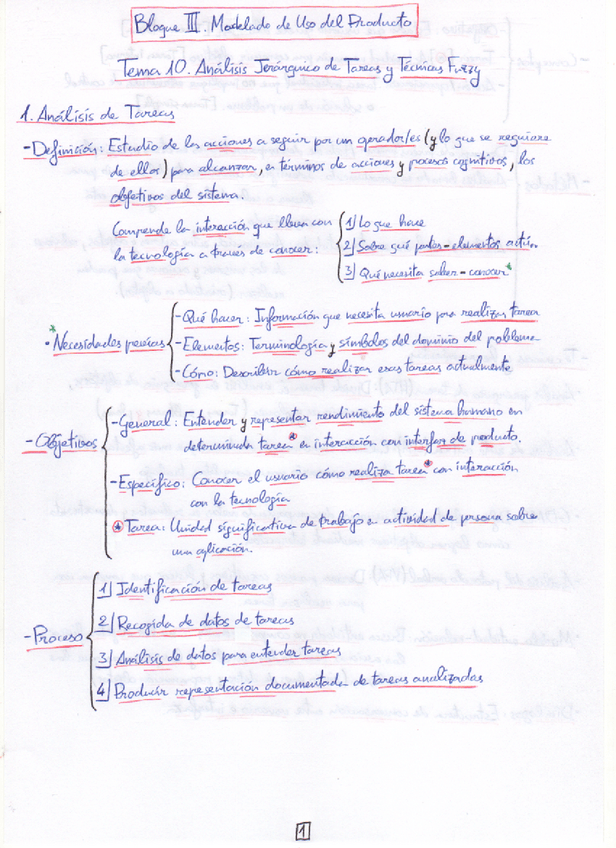 Bloque III. Modelado de Uso del Producto
Tema 10. Análisis Jerárquico de Tareas y Técnicas Fuzzy
1. Análisis de Tareas
- Definición: Estudio de las acciones a seguir por un operador/es (y lo que se requiere
de ellos) para alcanzar, en términos de acciones y procesos cognitivos, los
objetivos del sistema.
Comprende la interacción que llevan con
la tecnología a través de conocer:
1) Lo que hace
2) Sobre qué partes-elementos actúa
3) Qué necesita saber-conocer*
* • Necesidades previas
- Qué hacer: Información que necesita usuario para realizar tarea
- Elementos: Terminología y símbolos del dominio del problema
- Cómo: Describir cómo realizar esas tareas actualmente
- Objetivos
- General: Entender y representar rendimiento del sistema humano en
determinada tarea* en interacción con interfaz de producto.
- Específico: Conocer el usuario cómo realiza tarea* con interacción
con la tecnología
* Tarea: Unidad significativa de trabajo en actividad de persona sobre
una aplicación.
- Proceso
1) Identificación de tareas
2) Recogida de datos de tareas
3) Análisis de datos para entender tareas
4) Producir representación documentada de tareas analizadas
1